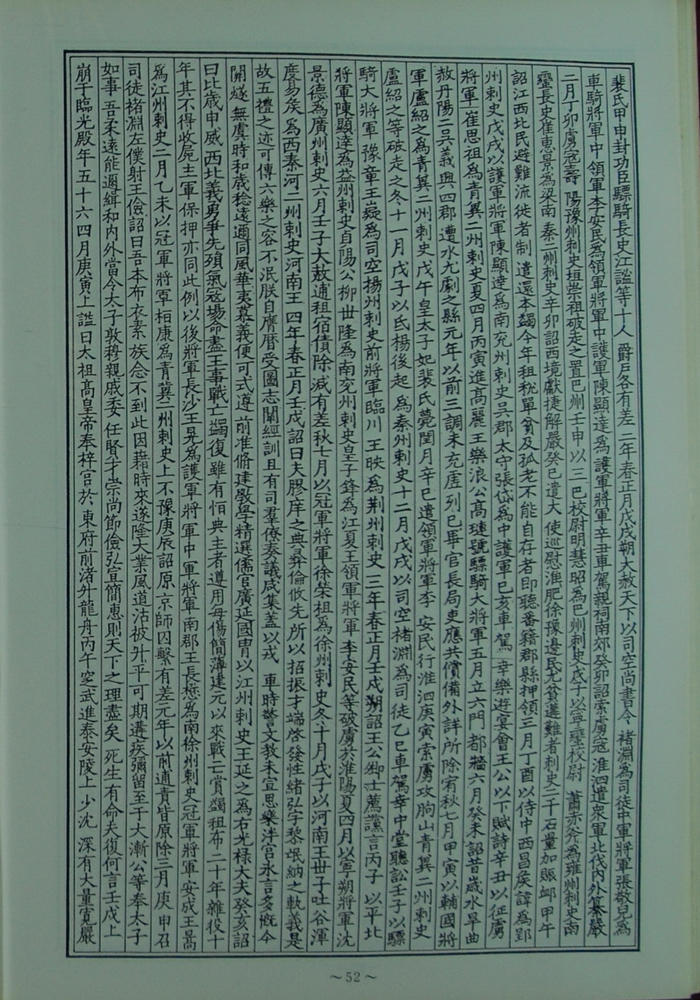 裴氏甲申封功臣驃騎長史江謐等十人爵戶各有差二年春正月戊戌朔大赦天下以司空尚書令褚淵為司徒中軍將軍張敬兒為
車騎將軍中領軍李安民為領軍將軍中護軍陳顯達為護軍將軍辛丑車駕親祠南郊癸卯詔索虜寇淮泗遣衆軍北伐內外纂嚴
二月丁卯虜寇壽陽豫州刺史垣崇祖破走之置巴州壬申以三巴校尉明慧昭為巴州刺史戊子以寧蠻校尉蕭赤斧為雍州刺史南
蠻長史崔惠景為梁南秦二州刺史辛卯詔西境獻捷解嚴癸巳遣大使巡慰淮肥徐豫邊民尤貧遘難者刺史二千石量加賑卹甲午
詔江西北民避難流徙者制遣還本蠲今年租稅單貧及孤老不能自存者即聽番籍郡縣押領三月丁酉以侍中西昌侯諱為郢
州刺史戊戌以護軍將軍陳顯達為南兗州刺史吳郡太守張岱為中護軍己亥車駕幸樂遊宴會王公以下賦詩辛丑以征虜
將軍崔思祖為青冀二州刺史夏四月丙寅進高麗王樂浪公高璉號驃騎大將軍五月立六門都牆六月癸未詔昔歲水旱曲
赦丹陽二吳義興四郡遭水尤劇之縣元年以前三調未充虛列已畢官長局吏應共償備外詳所除宥秋七月甲寅以輔國將
軍盧紹之為青冀二州刺史戊午皇太子妃裴氏薨閏月辛巳遣領軍將軍李安民行淮泗庚寅索虜攻朐山青冀二州刺史
盧紹之等破走之冬十一月戊子以氐楊後起為秦州刺史十二月戊戌以司空褚淵為司徒乙巳車駕幸中堂聽訟壬子以驃
騎大將軍豫章王嶷為司空揚州刺史前將軍臨川王映為荊州刺史三年春正月壬戌朔詔王公卿士薦讜言丙子以平北
將軍陳顯達為益州刺史貞陽公柳世隆為南兗州刺史皇子鋒為江夏王領軍將軍李安民等破虜於淮陽夏四月以寧朔將軍沈
景德為廣州刺史六月壬子大赦逋租宿債除減有差秋七月以冠軍將軍徐榮祖為徐州刺史冬十月戊子以河南王世子吐谷渾
度易侯為西秦河二州刺史河南王四年春正月壬戌詔曰夫膠庠之典彝倫攸先所以招振才端啓發性緒弘字黎氓納之軌義是
故五禮之迹可傳六樂之容不泯朕自膺曆受圖志闡經訓且有司羣僚奏議咸集蓋以戎車時警文教未宣思樂泮宮永言多慨今
關燧無虞時和歲稔遠邇同風華夷慕義便可式遵前准脩建敩學精選儒官廣延國冑以江州刺史王延之為右光祿大夫癸亥詔
曰比歲申威西北義勇爭先殞氣寇場命盡王事戰亡蠲復雖有恒典主者遵用每傷簡薄建元以來戰亡賞蠲租布二十年雜役十
年其不得收屍主軍保押亦同此例以後將軍長沙王晃為護軍將軍中軍將軍南郡王長懋為南徐州刺史冠軍將軍安成王暠
為江州刺史二月乙未以冠軍將軍桓康為青冀二州刺史上不豫庚辰詔原京師囚繫有差元年以前逋責皆原除三月庚申召
司徒褚淵左僕射王儉詔曰吾本布衣素族念不到此因藉時來遂隆大業風道沾被升平可期遘疾彌留至于大漸公等奉太子
如事吾柔遠能邇緝和內外當令太子敦穆親戚委任賢才崇尚節儉弘宣簡惠則天下之理盡矣死生有命夫復何言壬戌上
崩于臨光殿年五十六四月庚寅上謚曰太祖高皇帝奉梓宮於東府前渚升龍舟丙午窆武進泰安陵上少沈深有大量寬嚴
～52～